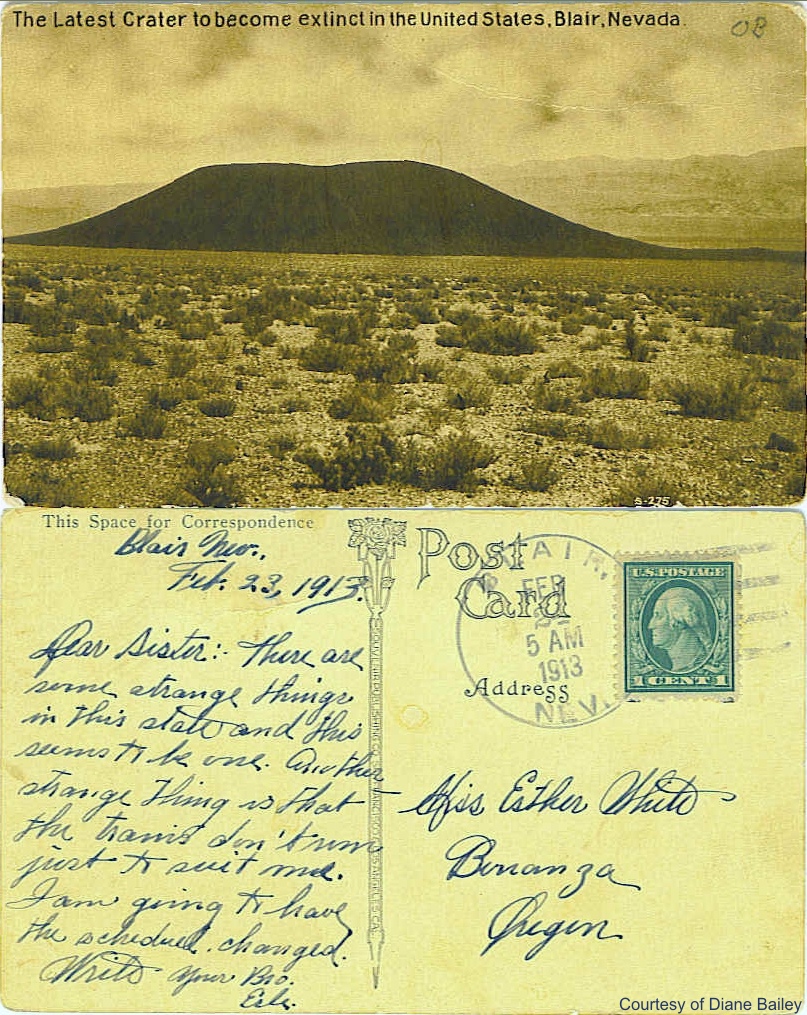 The Latest Crater to become extinct in the United States, Blair, Nevada.
OB
S-275
This Space for Correspondence
Blair Nev.,
Feb. 23, 1913.
Dear Sister:- There are
some strange things
in this state and this
seems to be one. Another
strange thing is that
the trains don't run
just to suit me.
I am going to have
the schedul. changed.
Write your Bro.
Post
Card
Address
BLAIR,
FEB
5 AM
1913
NEV.
U.S. POSTAGE
1 CENT 1
Miss Esther White
Bonanza
Oregon
Courtesy of Diane Bailey